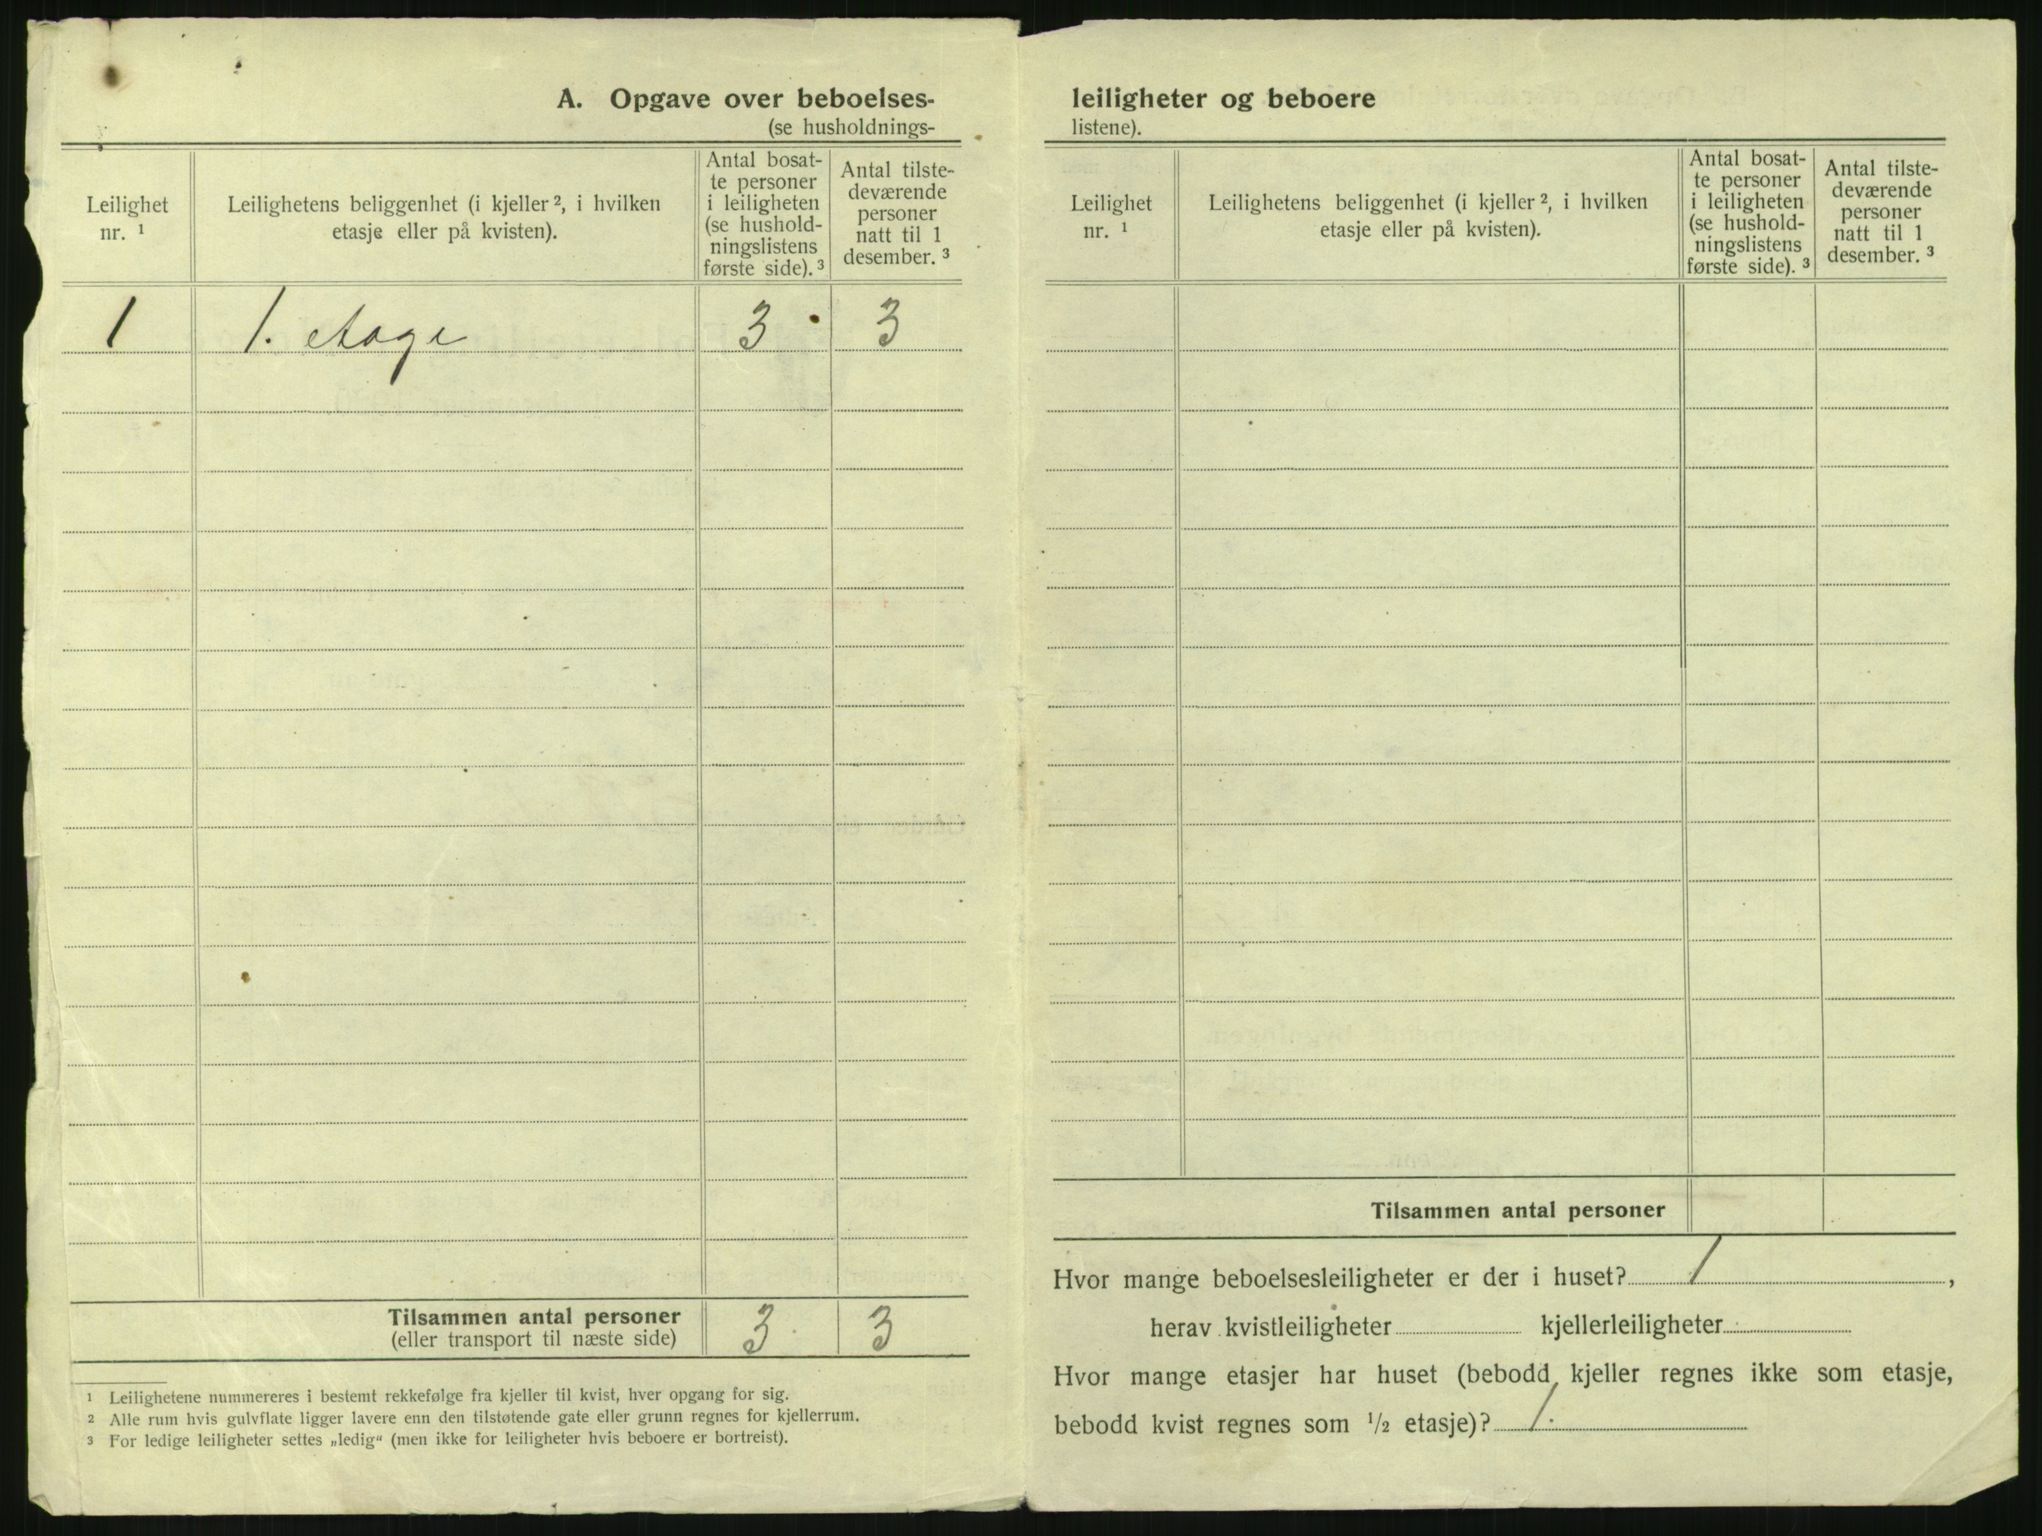 A. Opgave over beboelses-
(se husholdnings-
Leilighet
nr. ¹
Leilighetens beliggenhet (i kjeller ², i hvilken
etasje eller på kvisten).
Antal bosat-
te personer
i leiligheten
(se hushold-
ningslistens
første side). ³
Antal tilste-
deværende
personer
natt til 1
desember. ³
1 1. etage 3 3
Tilsammen antal personer 3 3
(eller transport til næste side)
¹ Leilighetene nummereres i bestemt rekkefølge fra kjeller til kvist, hver opgang for sig.
² Alle rum hvis gulvflate ligger lavere enn den tilstøtende gate eller grunn regnes for kjellerrum.
³ For ledige leiligheter settes „ledig“ (men ikke for leiligheter hvis beboere er bortreist).
leiligheter og beboere
listene).
Leilighet
nr. ¹
Leilighetens beliggenhet (i kjeller ², i hvilken
etasje eller på kvisten).
Antal bosat-
te personer
i leiligheten
(se hushold-
ningslistens
første side). ³
Antal tilste-
deværende
personer
natt til 1
desember. ³
Tilsammen antal personer
Hvor mange beboelsesleiligheter er der i huset? 1,
herav kvistleiligheter kjellerleiligheter
Hvor mange etasjer har huset (bebodd kjeller regnes ikke som etasje,
bebodd kvist regnes som ½ etasje)? 1.